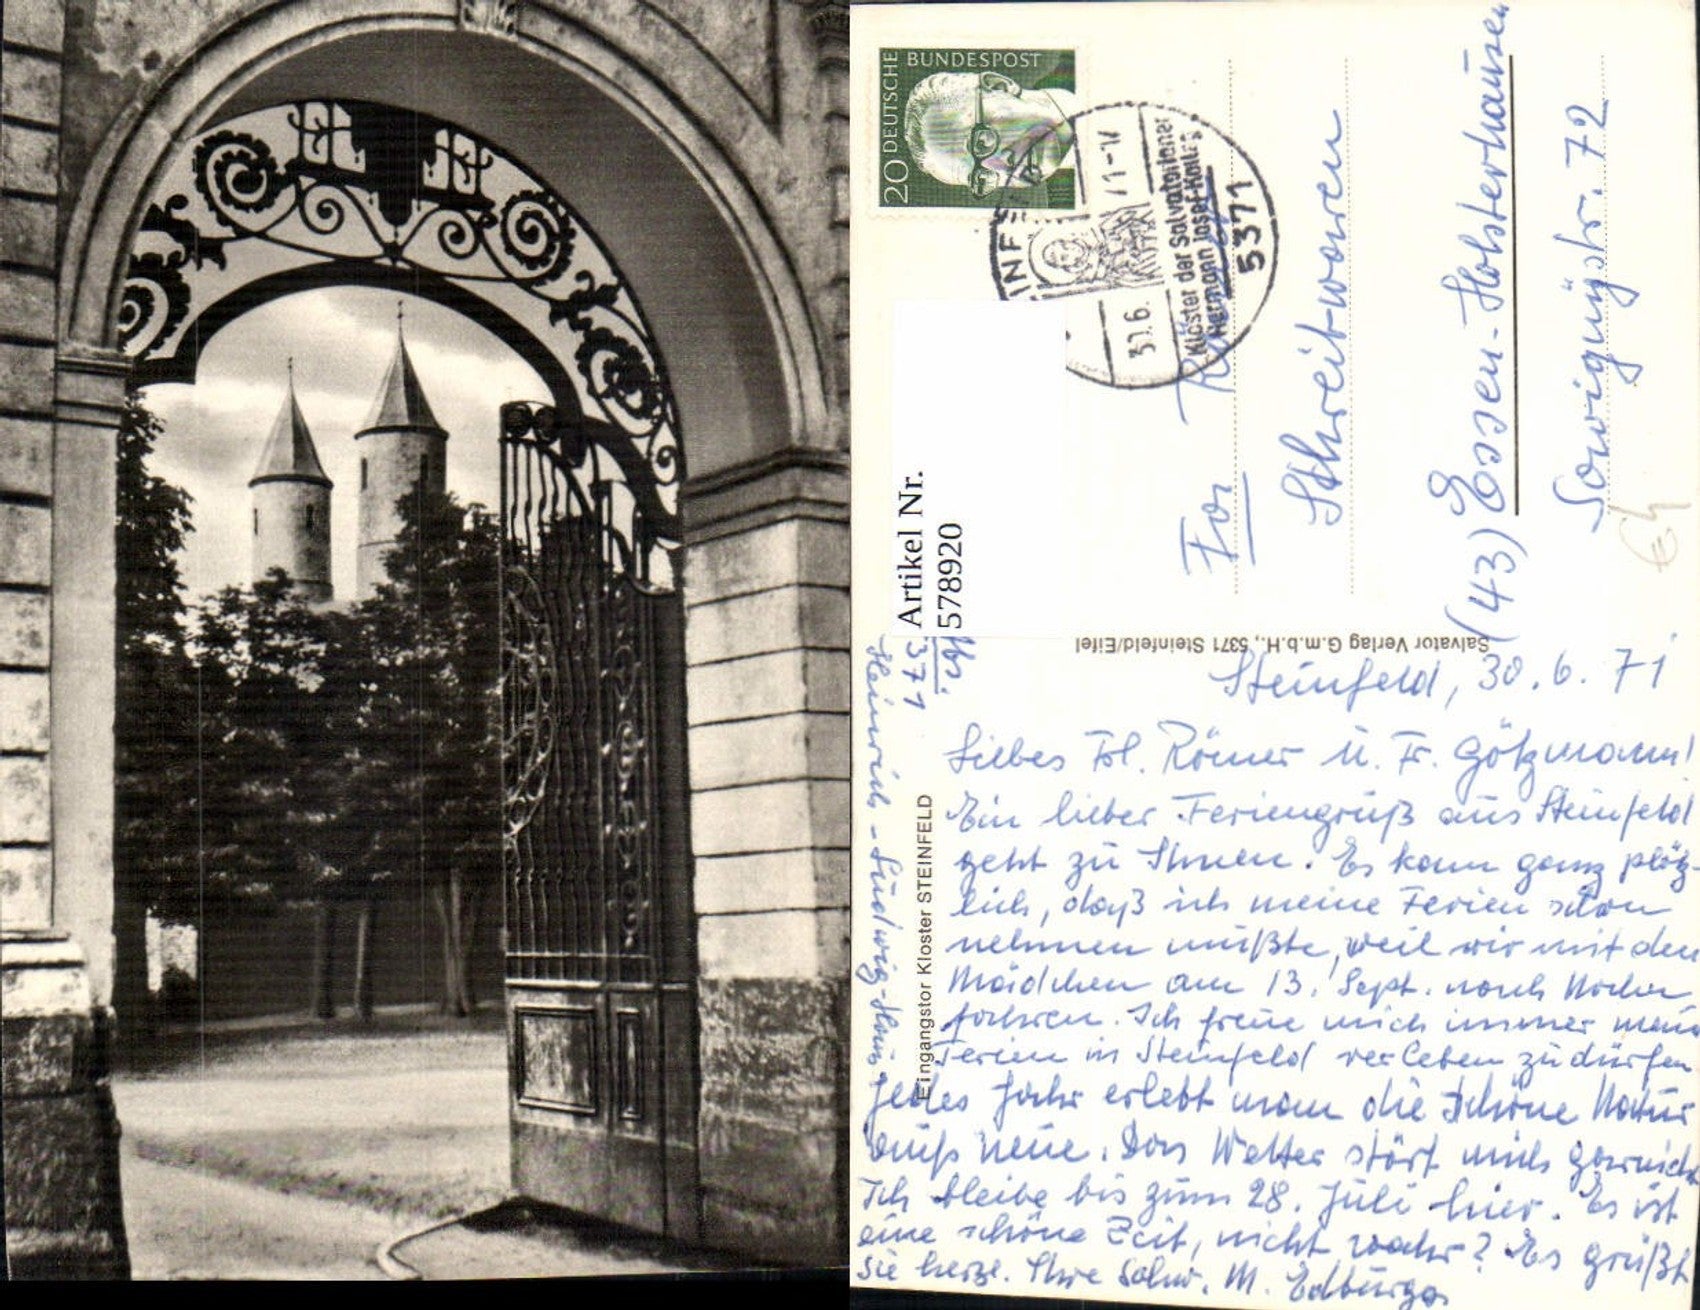 DEUTSCHE BUNDESPOST
20
5371
30.6.71-17
Kloster der Salvatorianer
Hermann-Josef-Kolleg
Artikel Nr.
578920
Fa
Römer
Schreibwaren
(43) Essen-Holsterhausen
Sowignystr. 72
Salvator Verlag G.m.b.H., 5371 Steinfeld/Eifel
Eingangstor Kloster STEINFELD
Steinfeld, 30.6.71
Liebes Frl. Römer u. Fr. Götzmann!
Ein lieber Feriengruß aus Steinfeld
geht zu Ihnen. Es kam ganz plötz-
lich, daß ich meine Ferien schon
nehmen mußte, weil wir mit den
Mädchen am 13. Sept. nach
fahren. Ich freue mich immer meine
Ferien in Steinfeld verleben zu dürfen
Jedes Jahr erlebt man die schöne Natur
aufs neue. Das Wetter stört mich garnicht
Ich bleibe bis zum 28. Juli hier. Es ist
eine schöne Zeit, nicht wahr? Es grüßt
Sie herzl. Ihre Schw. M. Edburga
Abs.
5371
Heinrich-Ludwig-Haus